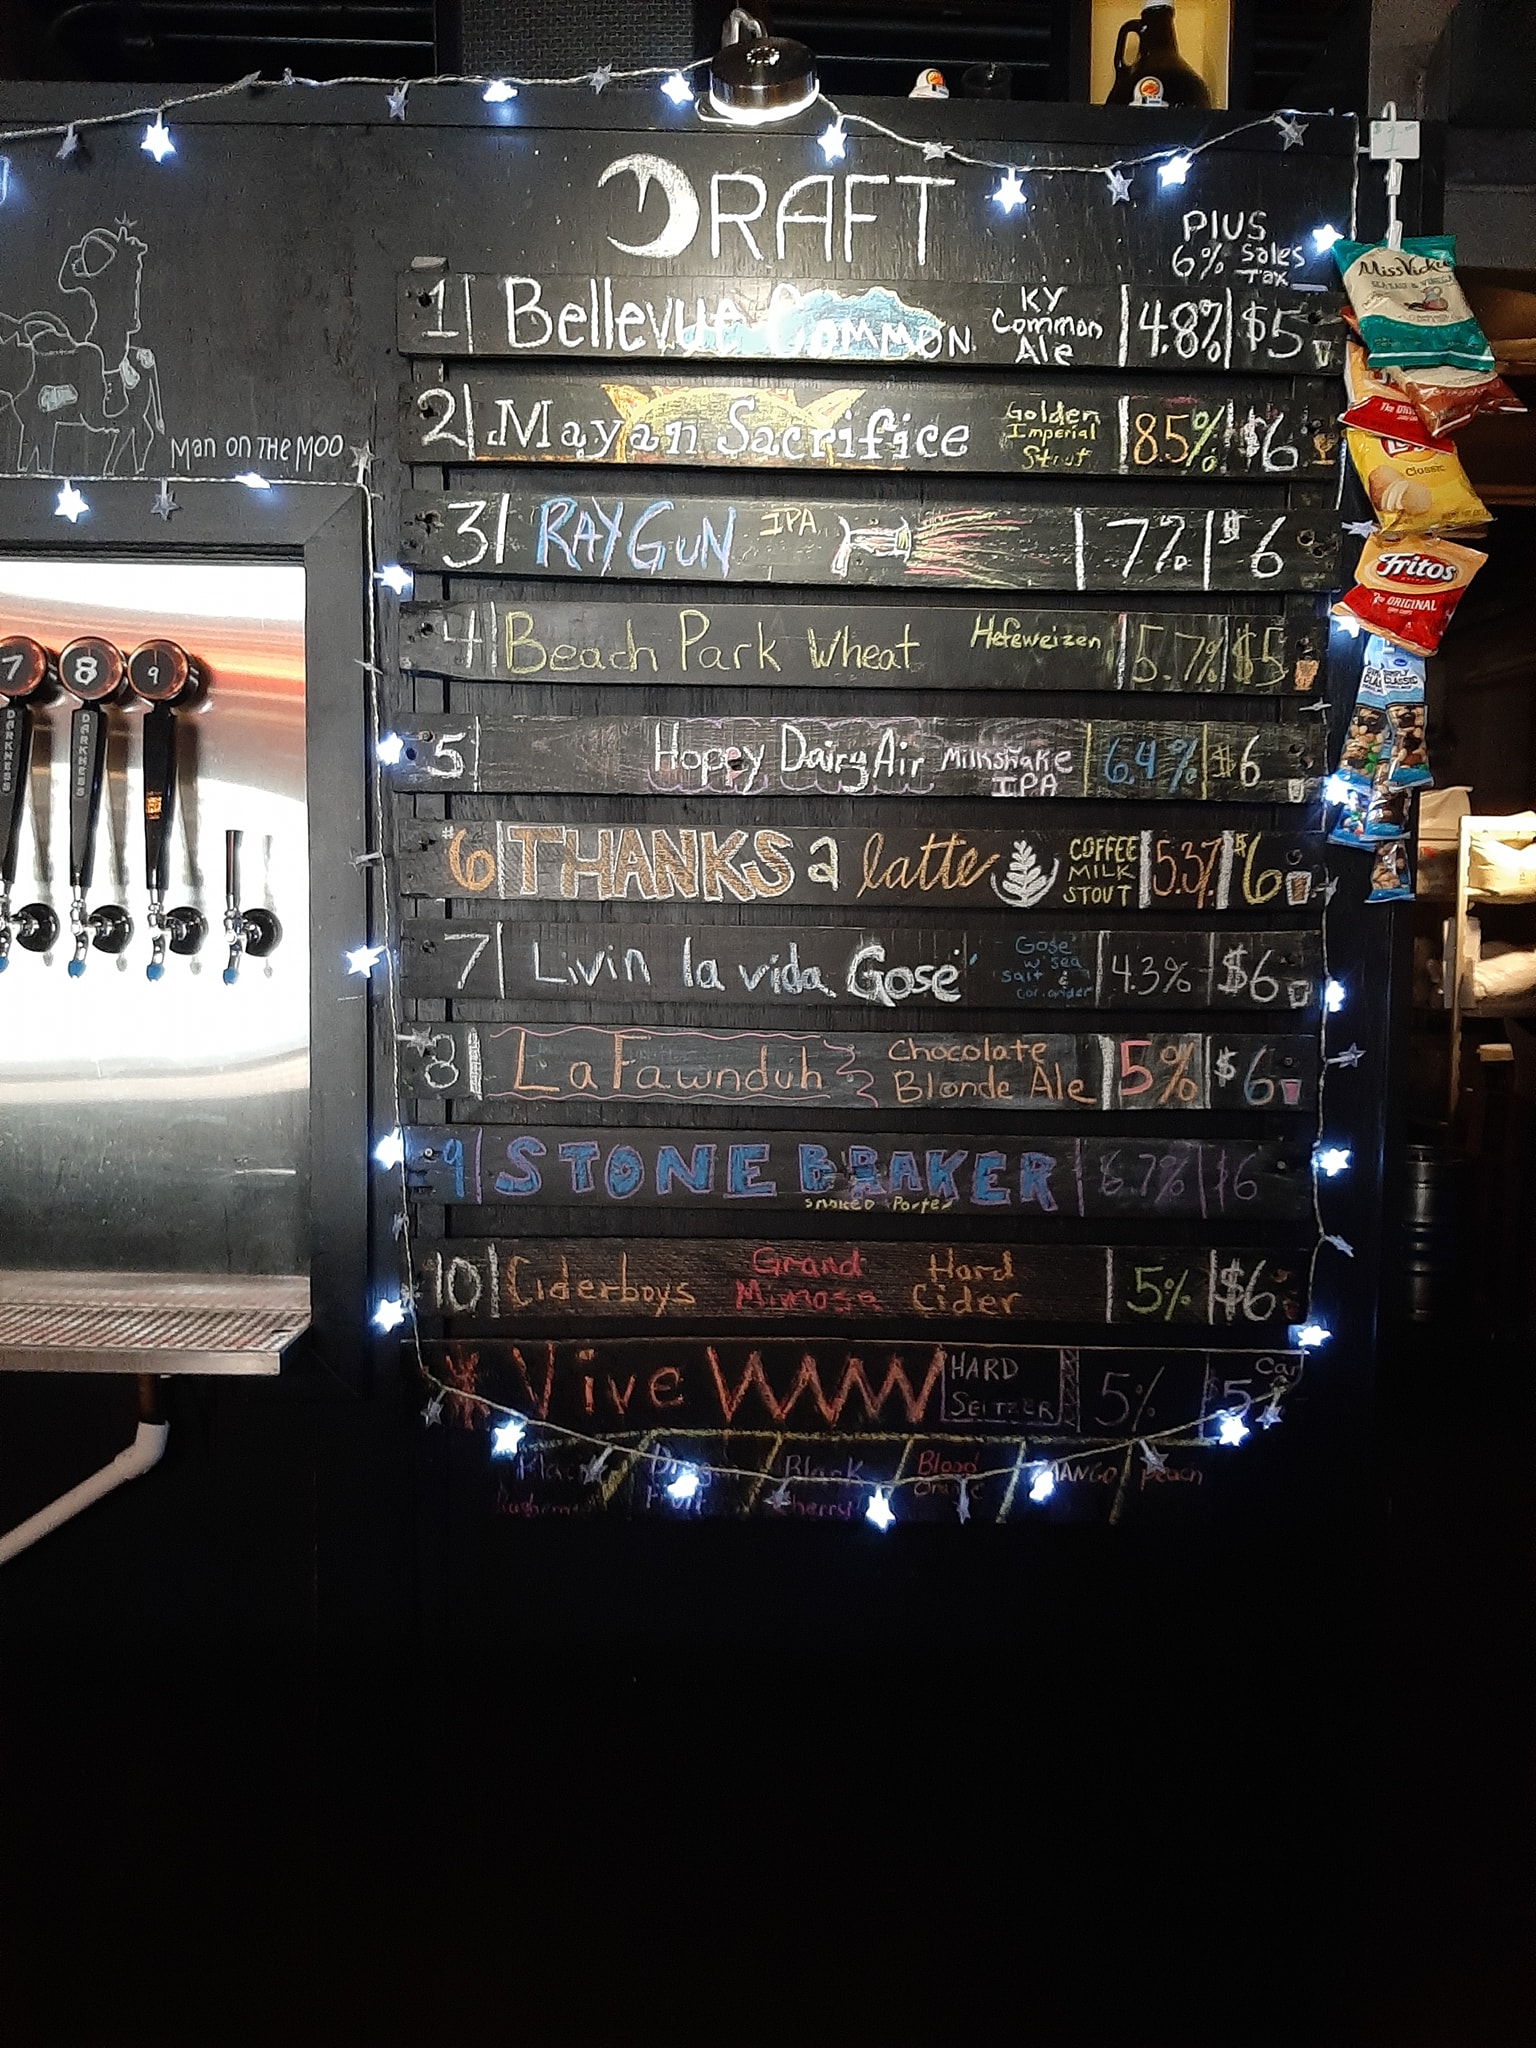 DRAFT
PLUS
6% Sales
Tax
1 Bellevue Common KY Common Ale 4.8% $5
2 Mayan Sacrifice Golden Imperial Stout 8.5% $6
3 RAYGUN IPA 7% $6
4 Beach Park Wheat Hefeweizen 5.7% $5
5 Hoppy Dairy Air Milkshake IPA 6.4% $6
#6 THANKS a latte COFFEE MILK STOUT 5.3% $6
7 Livin la vida Gose Gose w sea salt & coriander 4.3% $6
8 La Fawnduh Chocolate Blonde Ale 5% $6
9 STONE BRAKER smoked Porter 6.7% $6
10 Ciderboys Grand Mimosa Hard Cider 5% $6
Vive HARD SELTZER 5% $5
Black Cherry Blood Orange MANGO peach
Man on THE MOO
7 8 9
DARKNESS
DARKNESS
$1.00
Miss Vickie's
Classic
Fritos
The ORIGINAL